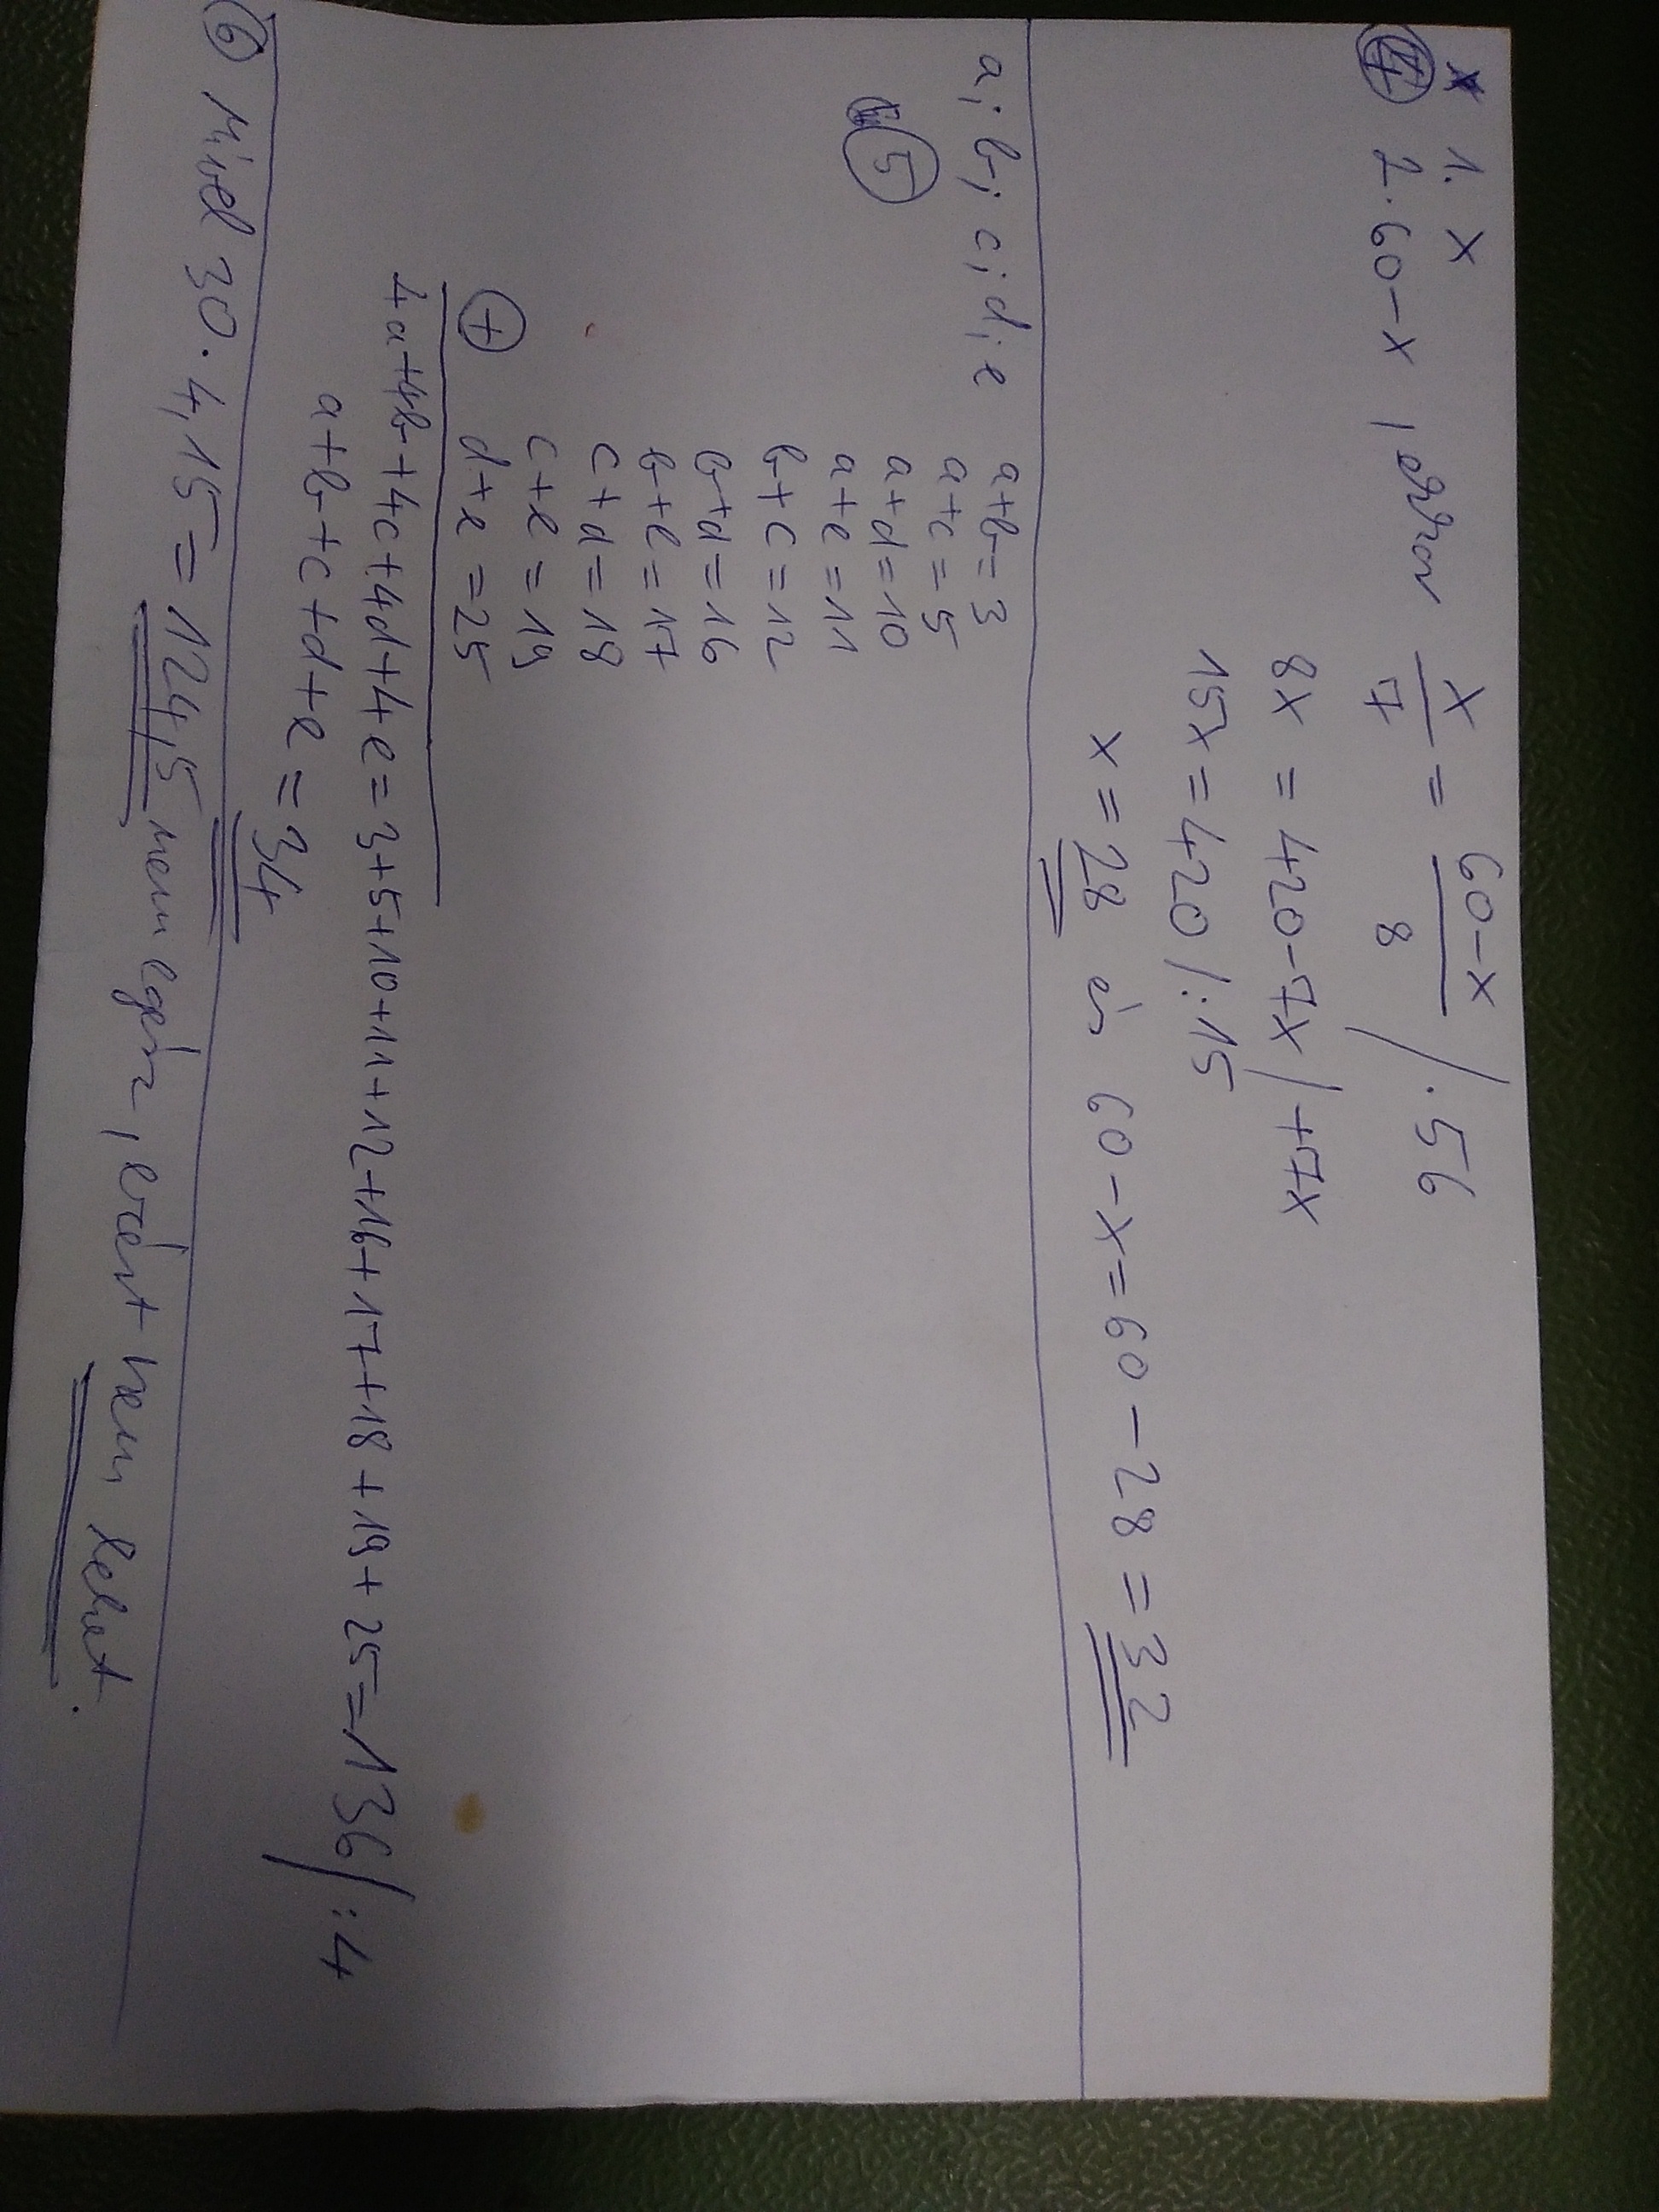 1. x
④ 2. 60-x , ekkor x/7 = 60-x/8 /·56
8x = 420-7x /+7x
15x = 420 /:15
x = 28 és 60-x = 60-28 = 32
a; b; c; d; e a+b=3
a+c=5
⑤ a+d=10
a+e=11
b+c=12
b+d=16
b+e=17
c+d=18
c+e=19
⊕ d+e=25
4a+4b+4c+4d+4e=3+5+10+11+12+16+17+18+19+25=136/:4
a+b+c+d+e=34
⑥ Mivel 30·4,15=124,5 nem egész, ezért nem lehet.